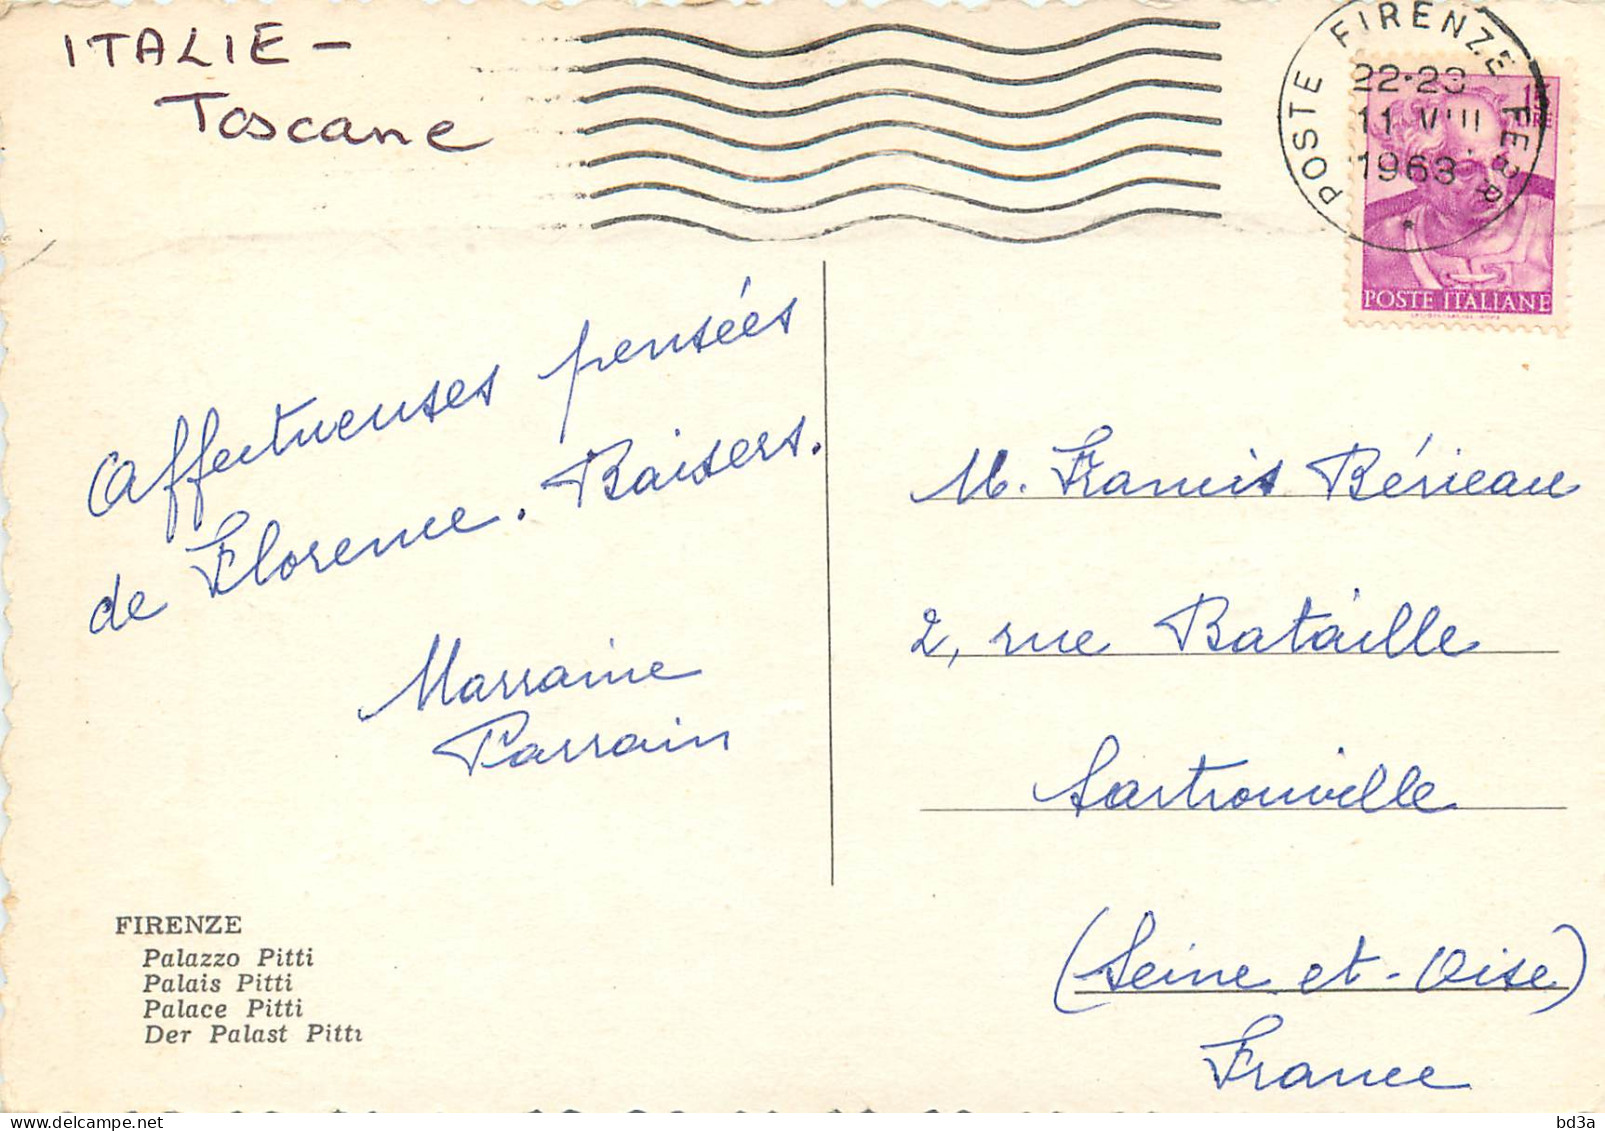 ITALIE -
Toscane
POSTE FIRENZE FERR
22-23
11 VIII
1963
15
LIRE
POSTE ITALIANE
Affectueuses pensées
de Florence. Baisers.
Marraine
Parrain
M. Francis Bérieau
2, rue Bataille
Sartrouville
(Seine et-Oise)
France
FIRENZE
Palazzo Pitti
Palais Pitti
Palace Pitti
Der Palast Pitti
delcampe.net
bd3a